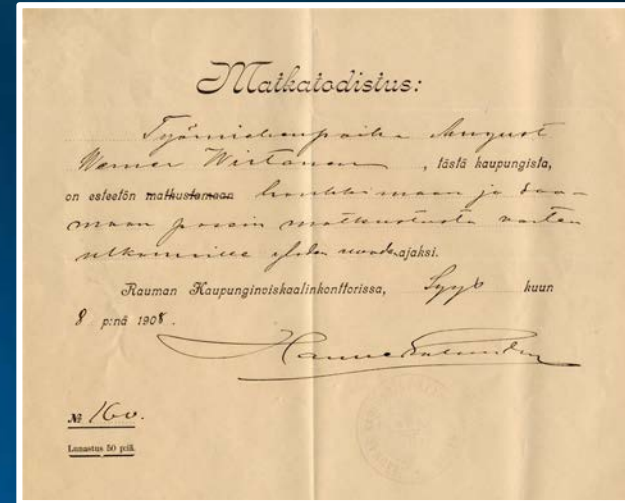 Matkatodistus:
Työmiehenpoika August
Werner Wirtanen, tästä kaupungista,
on esteetön matkustamaan hankkimaan ja saa-
maan passin matkustusta varten
ulkomaille yhden vuoden ajaksi.
Rauman Kaupunginviskaalinkonttorissa, Syys kuun
8 p:nä 1908.
№ 160.
Lunastus 50 p:iä